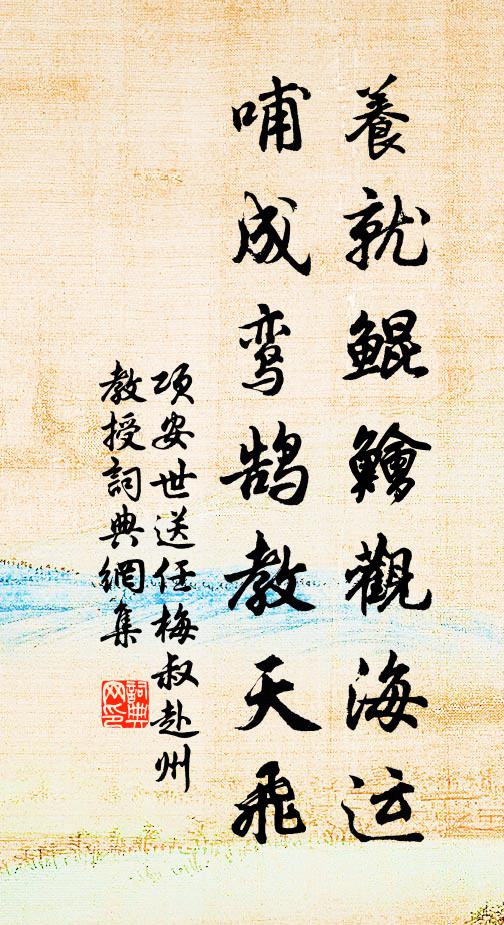 養就鲲鱠觀海运
哺成鸾鹄教天飛
项安世送任梅叔赴州
教授詞典網集
詞典
网印